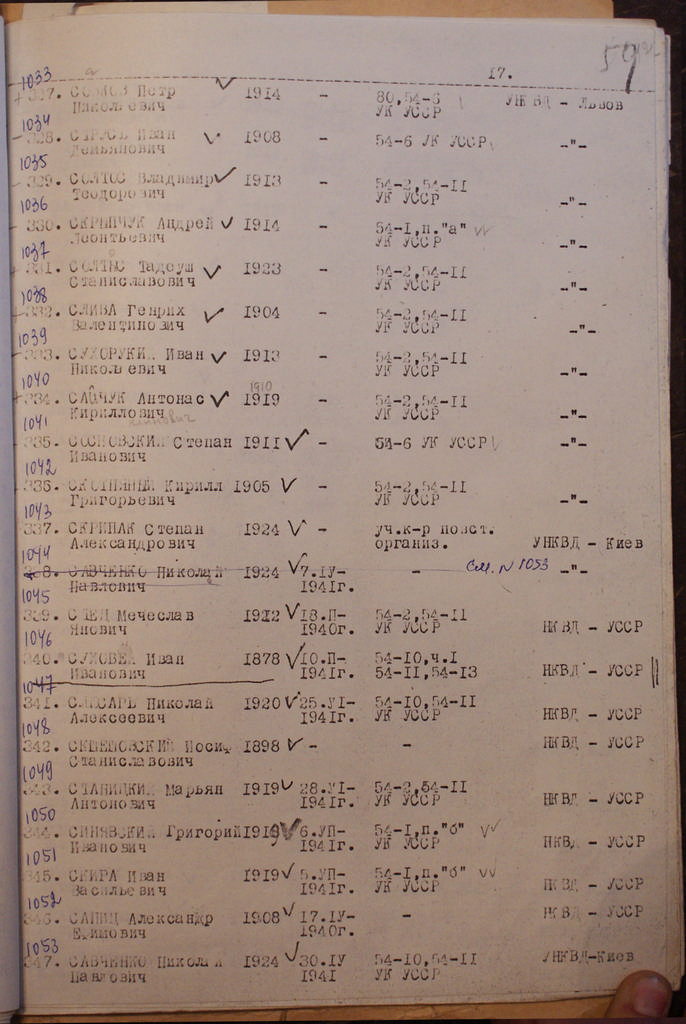 59
17.
1033
327. Петр 1914 - 80,54-6 УНКВД - Львов
Николаевич УК УССР
1034
328. Иван 1908 - 54-6 УК УССР -"-
Демьянович
1035
329. СОЛТОС Владимир 1913 - 54-2,54-II
Теодорович УК УССР -"-
1036
330. СКРЫПЧУК Андрей 1914 - 54-I,п."а"
Леонтьевич УК УССР -"-
1037
331. Тадеуш 1923 - 54-2,54-II
Станиславович УК УССР -"-
1038
332. СЛИВА Генрих 1904 - 54-2,54-II
Валентинович УК УССР -"-
1039
333. СУХОРУКИЙ Иван 1913 - 54-2,54-II
Николаевич УК УССР -"-
1040
1910
334. САЙЧУК Антонас 1919 - 54-2,54-II
Кириллович УК УССР -"-
1041
335. СОСНОВСКИЙ Степан 1911 - 54-6 УК УССР -"-
Иванович
1042
336. Кирилл 1905 - 54-2,54-II
Григорьевич УК УССР -"-
1043
337. СКРИПАК Степан 1924 - уч.к-р повст.
Александрович организ. УНКВД - Киев
1044
338. САВЧЕНКО Николай 1924 7.IУ- - См. N 1053 -"-
Павлович 1941г.
1045
339. Мечеслав 1912 18.П- 54-2,54-II
Янович 1940г. УК УССР НКВД - УССР
1046
340. СУХОВЕЙ Иван 1878 10.П- 54-10,ч.I
Иванович 1941г. 54-II,54-13 НКВД - УССР
1047
341. СЛЕСАРЬ Николай 1920 25.УI- 54-10,54-II
Алексеевич 1941г. УК УССР НКВД - УССР
1048
342. Иосиф 1898 - - НКВД - УССР
Станиславович
1049
343. СТАНИЦКИЙ Марьян 1919 28.УI- 54-2,54-II
Антонович 1941г. УК УССР НКВД - УССР
1050
344. СИНЯВСКИЙ Григорий 1919 6.УП- 54-I,п."б"
Иванович 1941г. УК УССР НКВД - УССР
1051
345. СКИРА Иван 1919 5.УП- 54-I,п."б"
Васильевич 1941г. УК УССР НКВД - УССР
1052
346. САПИЦ Александр 1908 17.IУ- - НКВД - УССР
Ефимович 1940г.
1053
347. САВЧЕНКО Николай 1924 30.IУ 54-10,54-II УНКВД-Киев
Павлович 1941 УК УССР